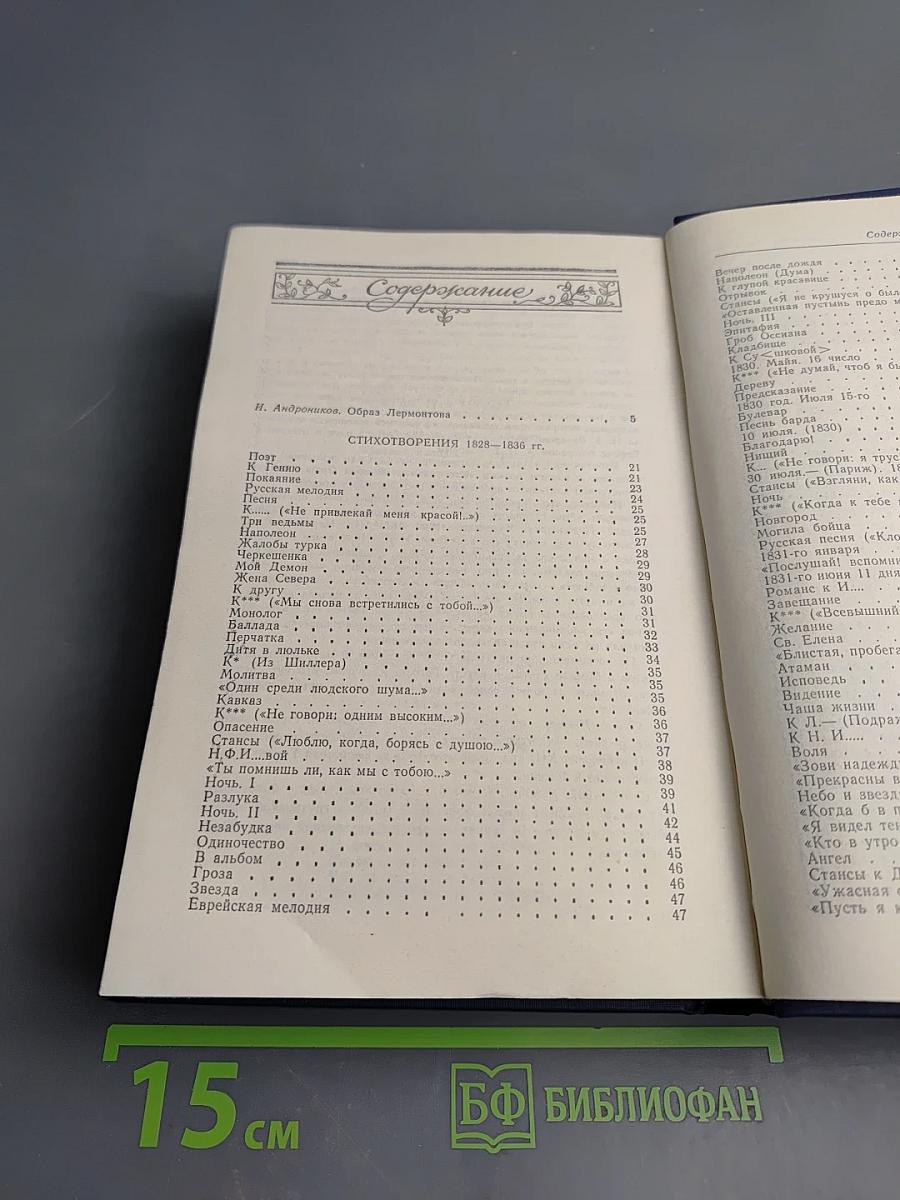 Содержание
И. Андроников. Образ Лермонтова . . . . . . . . . 5
СТИХОТВОРЕНИЯ 1828—1836 гг.
Поэт 21
К Гению 21
Покаяние 23
Русская мелодия 24
Песня 25
К...... («Не привлекай меня красой!..») 25
Три ведьмы 25
Наполеон 27
Жалобы турка 28
Черкешенка 29
Мой Демон 29
Жена Севера 30
К другу 30
К*** («Мы снова встретились с тобой...») 31
Монолог 31
Баллада 32
Перчатка 33
Дитя в люльке 34
К* (Из Шиллера) 35
Молитва 35
«Один среди людского шума...» 35
Кавказ 36
К*** («Не говори: одним высоким...») 36
Опасение 37
Стансы («Люблю, когда, борясь с душою...») 37
Н.Ф.И....вой 38
«Ты помнишь ли, как мы с тобою...» 39
Ночь. I 39
Разлука 41
Ночь. II 42
Незабудка 44
Одиночество 45
В альбом 46
Гроза 46
Звезда 47
Еврейская мелодия 47
Содер
Вечер после дождя
Наполеон (Дума)
К глупой красавице
Отрывок
Стансы («Я не крушуся о был
«Оставленная пустынь предо м
Ночь. III
Эпитафия
Гроб Оссиана
Кладбище
К Су<шковой>
1830. Майя. 16 число
К*** («Не думай, чтоб я бы
Дереву
Предсказание
1830 год. Июля 15-го
Булевар
Песнь барда
10 июля. (1830)
Благодарю!
Нищий
К... («Не говори: я трус
30 июля.— (Париж). 18
Стансы («Взгляни, как
Ночь
К*** («Когда к тебе
Новгород
Могила бойца
Русская песня («Кло
1831-го января
«Послушай! вспомни
1831-го июня 11 дня
Романс к И....
Завещание
К*** («Всевышний
Желание
Св. Елена
«Блистая, пробега
Атаман
Исповедь
Видение
Чаша жизни
К Л.— (Подраж
К Н. И.....
Воля
«Зови надежду
«Прекрасны в
Небо и звезды
«Когда б в п
«Я видел тен
«Кто в утро
Ангел
Стансы к Д
«Ужасная с
«Пусть я к
15 см
БФ БИБЛИОФАН